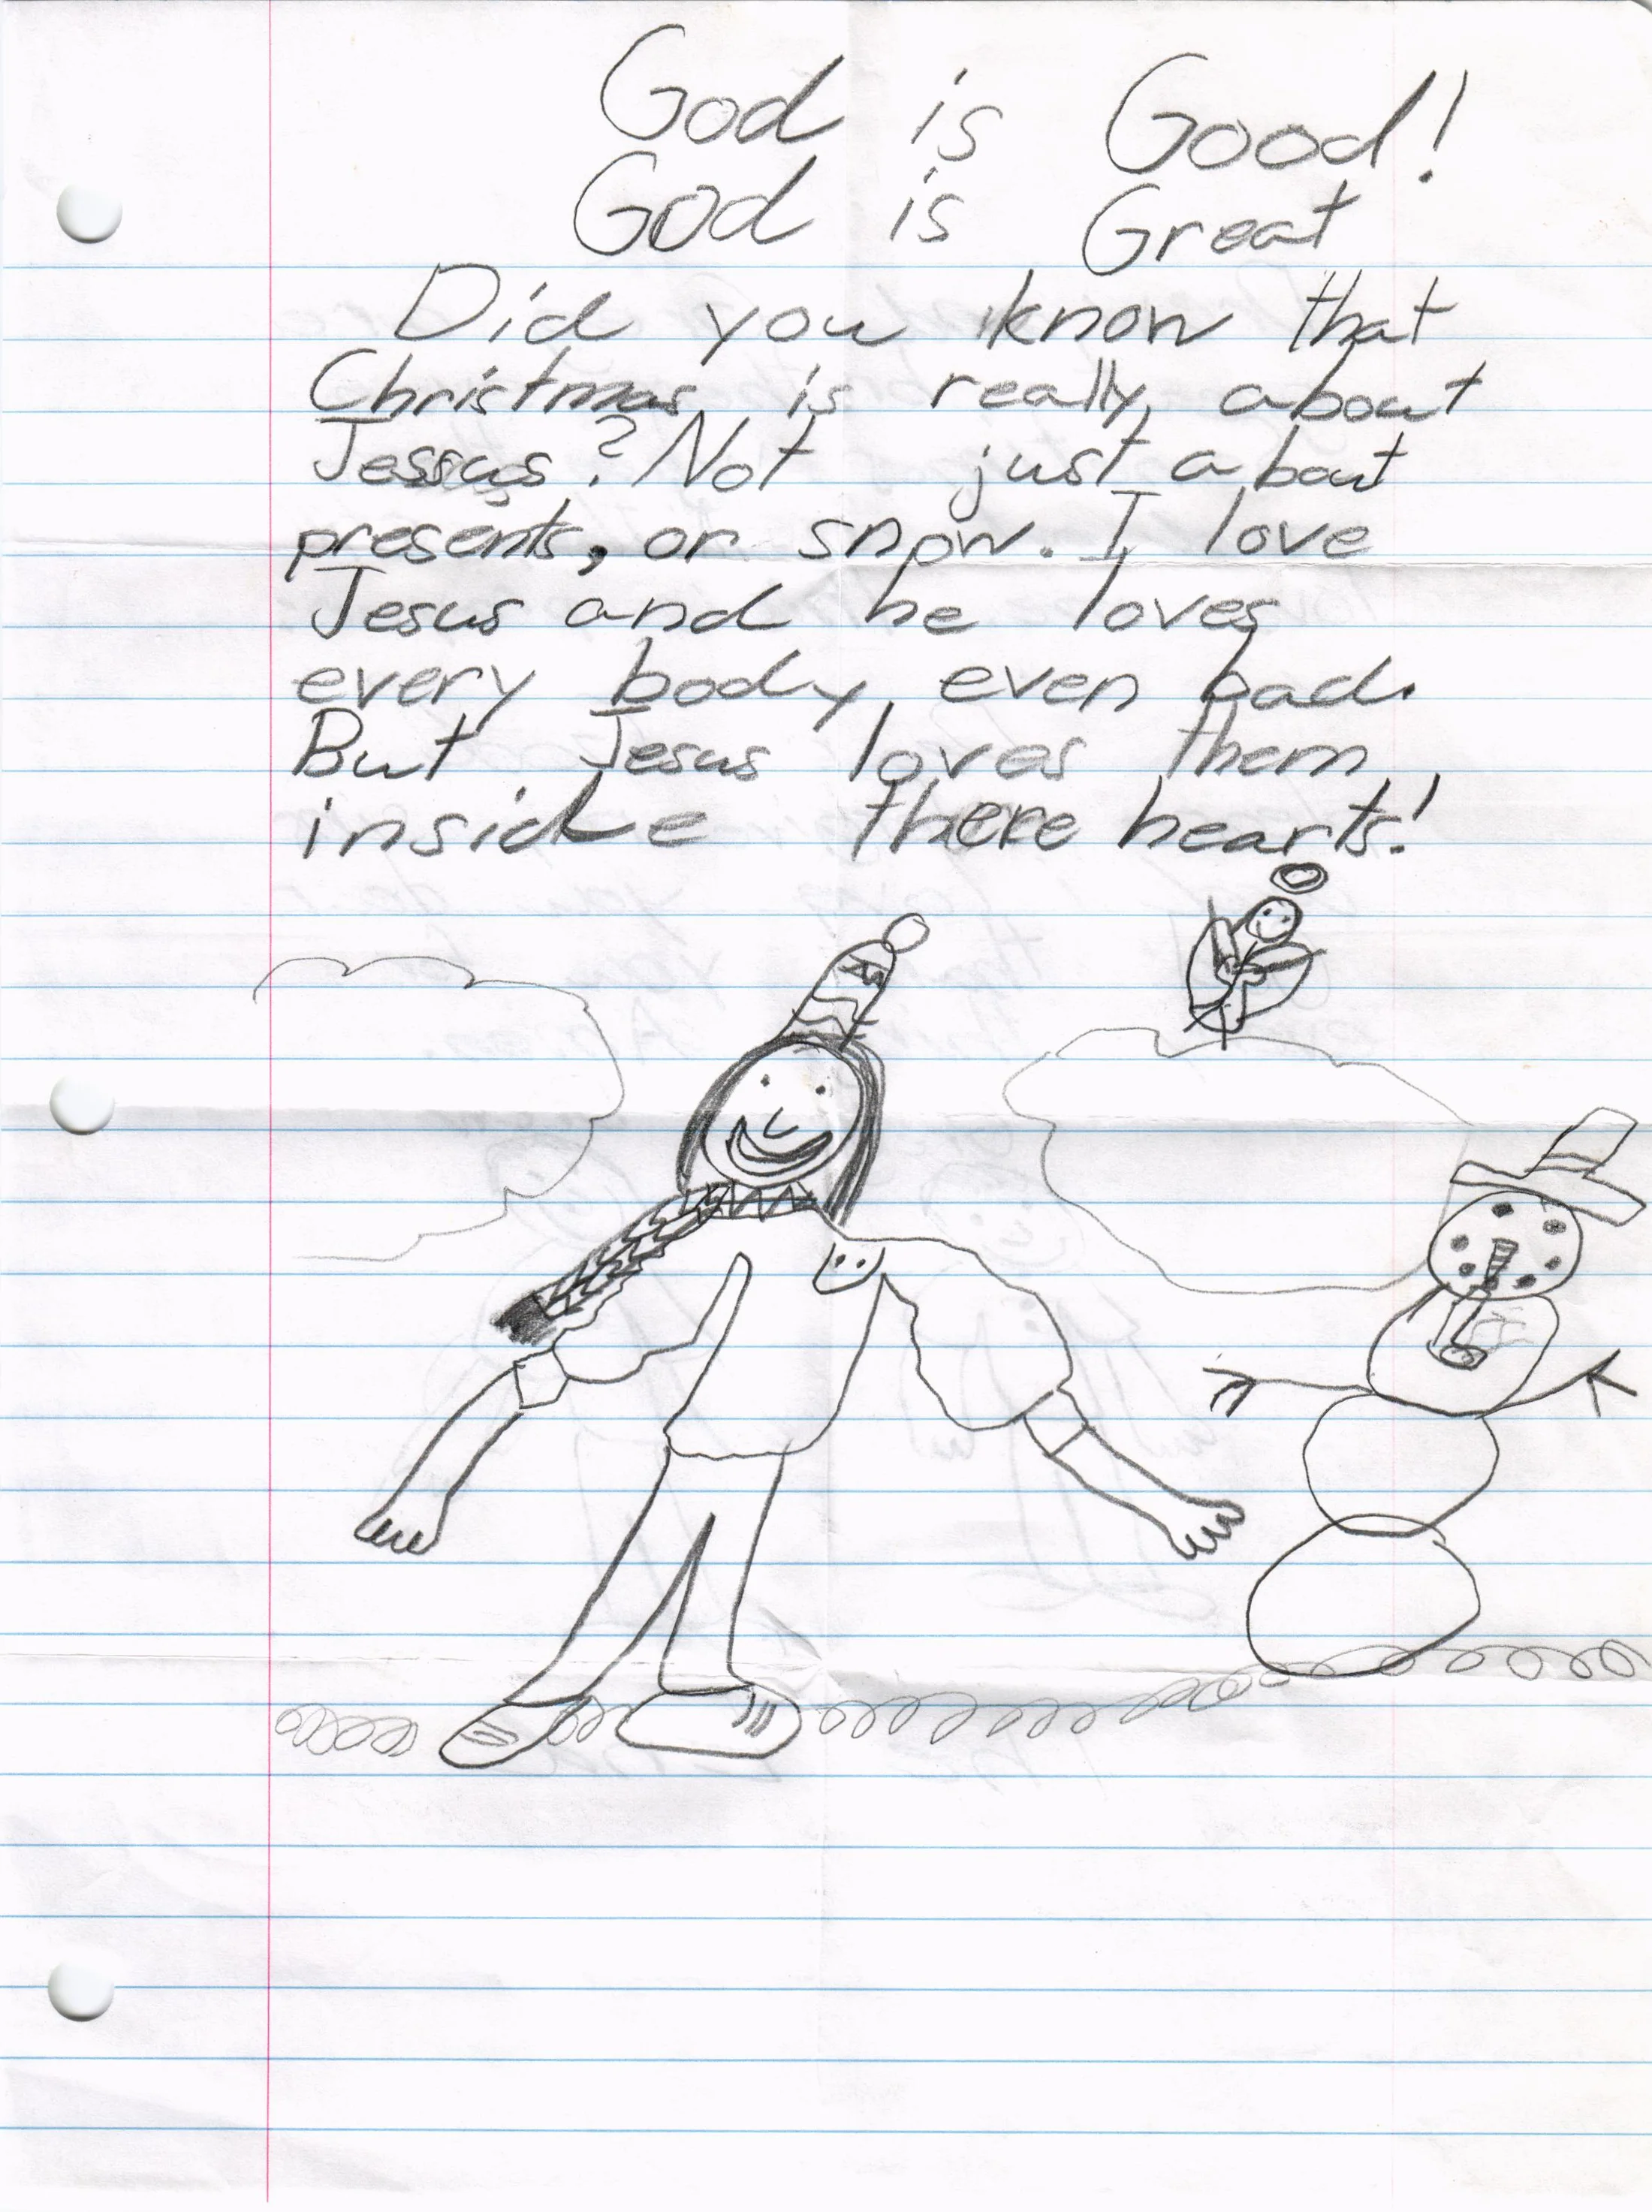 God is Good!
God is Great
Did you know that
Christmas is really about
Jessus? Not just about
presents, or snow. I love
Jesus and he loves
every body, even bad.
But Jesus loves them
inside there hearts!